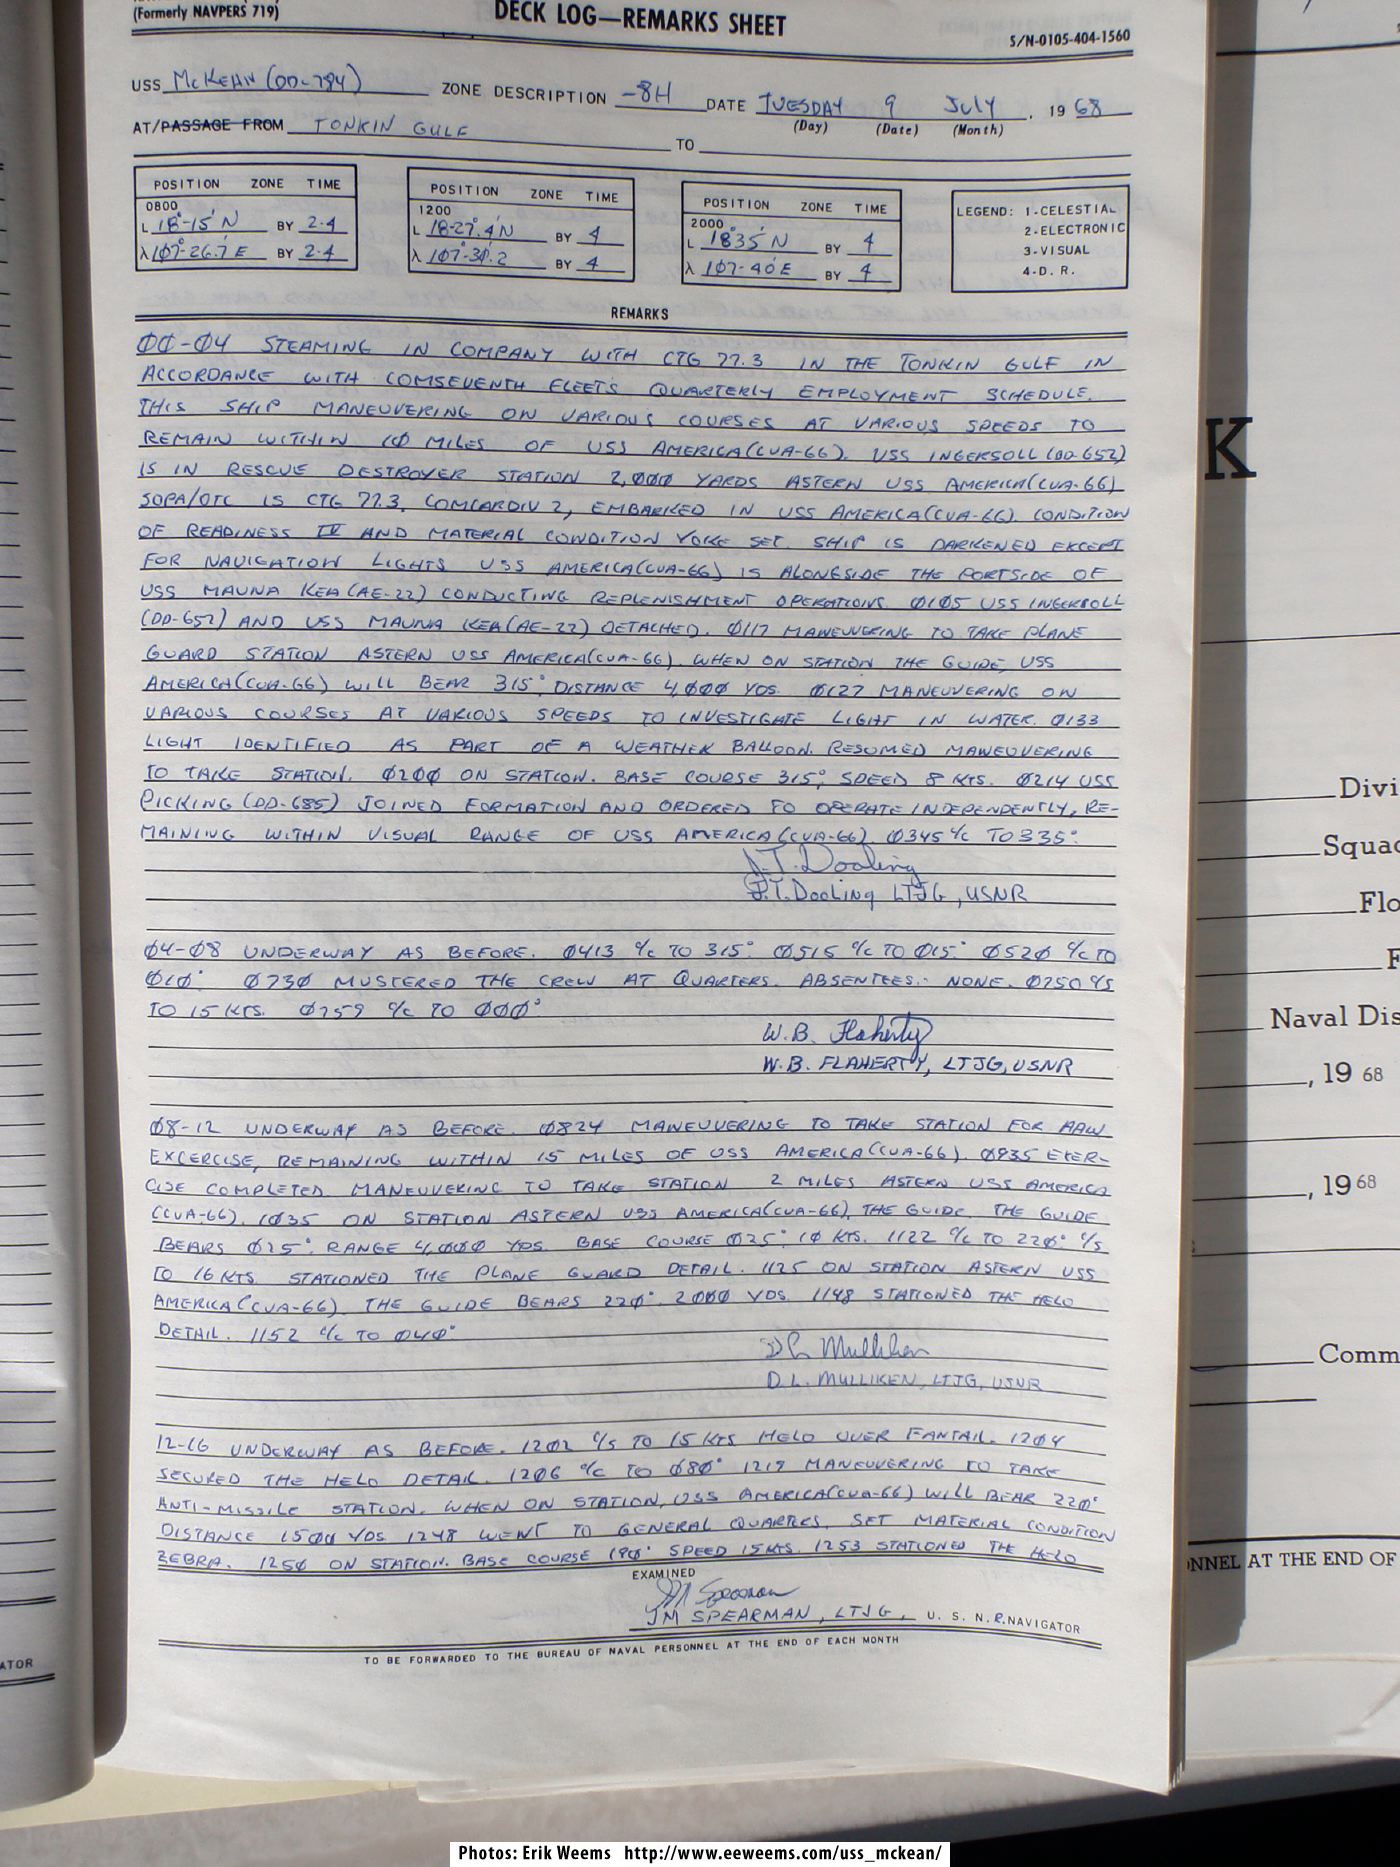 (Formerly NAVPERS 719)
DECK LOG—REMARKS SHEET
S/N-0105-404-1560
USS McKEAN (DD-784) ZONE DESCRIPTION -8H DATE TUESDAY 9 July, 19 68
(Day) (Date) (Month)
AT/PASSAGE FROM TONKIN GULF TO
POSITION ZONE TIME
0800
L 18°-15' N BY 2-4
λ 107°-26.7' E BY 2-4
POSITION ZONE TIME
1200
L 18-27.4 N BY 4
λ 107°-38.2 BY 4
POSITION ZONE TIME
2000
L 18°35' N BY 4
λ 107-40 E BY 4
LEGEND: 1-CELESTIAL
2-ELECTRONIC
3-VISUAL
4-D. R.
REMARKS
00-04 STEAMING IN COMPANY WITH CTG 77.3 IN THE TONKIN GULF IN
ACCORDANCE WITH COMSEVENTH FLEETS QUARTERLY EMPLOYMENT SCHEDULE.
THIS SHIP MANEUVERING ON VARIOUS COURSES AT VARIOUS SPEEDS TO
REMAIN WITHIN 10 MILES OF USS AMERICA (CVA-66). USS INGERSOLL (DD-652)
IS IN RESCUE DESTROYER STATION 2,000 YARDS ASTERN USS AMERICA (CVA-66)
SOPA/OTC IS CTG 77.3, COMCARDIV 2, EMBARKED IN USS AMERICA (CVA-66). CONDITION
OF READINESS IV AND MATERIAL CONDITION YOKE SET. SHIP IS DARKENED EXCEPT
FOR NAVIGATION LIGHTS USS AMERICA (CVA-66) IS ALONGSIDE THE PORTSIDE OF
USS MAUNA KEA (AE-22) CONDUCTING REPLENISHMENT OPERATIONS. 0105 USS INGERSOLL
(DD-652) AND USS MAUNA KEA (AE-22) DETACHED. 0117 MANEUVERING TO TAKE PLANE
GUARD STATION ASTERN USS AMERICA (CVA-66). WHEN ON STATION THE GUIDE, USS
AMERICA (CVA-66) WILL BEAR 315°, DISTANCE 4,000 YDS. 0127 MANEUVERING ON
VARIOUS COURSES AT VARIOUS SPEEDS TO INVESTIGATE LIGHT IN WATER. 0133
LIGHT IDENTIFIED AS PART OF A WEATHER BALLOON. RESUMED MANEUVERING
TO TAKE STATION. 0200 ON STATION. BASE COURSE 315°, SPEED 8 KTS. 0214 USS
PICKING (DD-685) JOINED FORMATION AND ORDERED TO OPERATE INDEPENDENTLY, RE-
MAINING WITHIN VISUAL RANGE OF USS AMERICA (CVA-66). 0345 C/C TO 335°.
J.T. Dooling
J.T. Dooling LTJG, USNR
04-08 UNDERWAY AS BEFORE. 0413 C/C TO 315°. 0515 C/C TO 015°. 0520 C/C TO
010°. 0730 MUSTERED THE CREW AT QUARTERS. ABSENTEES: NONE. 0750 C/S
TO 15 KTS. 0759 C/C TO 000°
W.B. Flaherty
W.B. FLAHERTY, LTJG, USNR
08-12 UNDERWAY AS BEFORE. 0824 MANEUVERING TO TAKE STATION FOR AAW
EXCERCISE, REMAINING WITHIN 15 MILES OF USS AMERICA (CVA-66). 0935 EXER-
CISE COMPLETED. MANEUVERING TO TAKE STATION 2 MILES ASTERN USS AMERICA
(CVA-66). 1035 ON STATION ASTERN USS AMERICA (CVA-66), THE GUIDE. THE GUIDE
BEARS 025°. RANGE 4,000 YDS. BASE COURSE 025° 10 KTS. 1122 C/C TO 220° C/S
TO 16 KTS. STATIONED THE PLANE GUARD DETAIL. 1125 ON STATION ASTERN USS
AMERICA (CVA-66). THE GUIDE BEARS 220°. 2000 YDS. 1148 STATIONED THE HELO
DETAIL. 1152 C/C TO 040°
D L Mulliken
D.L. MULLIKEN, LTJG, USNR
12-16 UNDERWAY AS BEFORE. 1202 C/S TO 15 KTS HELO OVER FANTAIL. 1204
SECURED THE HELO DETAIL. 1206 C/C TO 080° 1219 MANEUVERING TO TAKE
ANTI-MISSILE STATION. WHEN ON STATION, USS AMERICA (CVA-66) WILL BEAR 220°
DISTANCE 1500 YDS 1248 WENT TO GENERAL QUARTERS, SET MATERIAL CONDITION
ZEBRA. 1250 ON STATION. BASE COURSE 190° SPEED 15 KTS. 1253 STATIONED THE HELO
EXAMINED
JM Spearman
JM SPEARMAN, LTJG, U. S. N.R. NAVIGATOR
TO BE FORWARDED TO THE BUREAU OF NAVAL PERSONNEL AT THE END OF EACH MONTH
ATOR
K
Divi
Squad
Flo
F
Naval Dis
, 19 68
, 19 68
Comm
NNEL AT THE END OF
Photos: Erik Weems http://www.eeweems.com/uss_mckean/